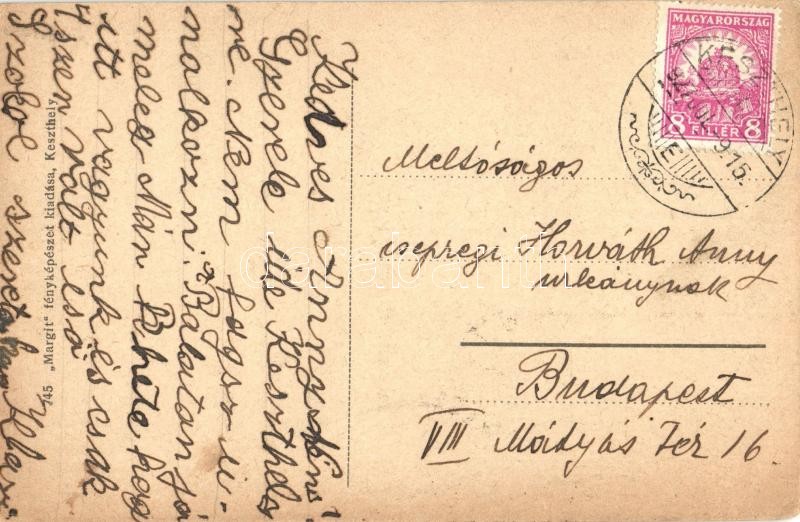 Kedves Annuskám!
Gyerele ide Keszthely
re. Nem fogsz u-
natkozni. A Balaton jó
meleg Már két hete hogy
itt vagyunk és csak
4szer volt eső
szeretettel Klári
745 „Margit" fényképészet kiadása, Keszthely
MAGYARORSZÁG
8 FILLÉR 8
KESZTHELY
Meltóságos
csepregi Horváth Anny
urleánynak
Budapest
VIII Mátyás Tér 16
darabanth